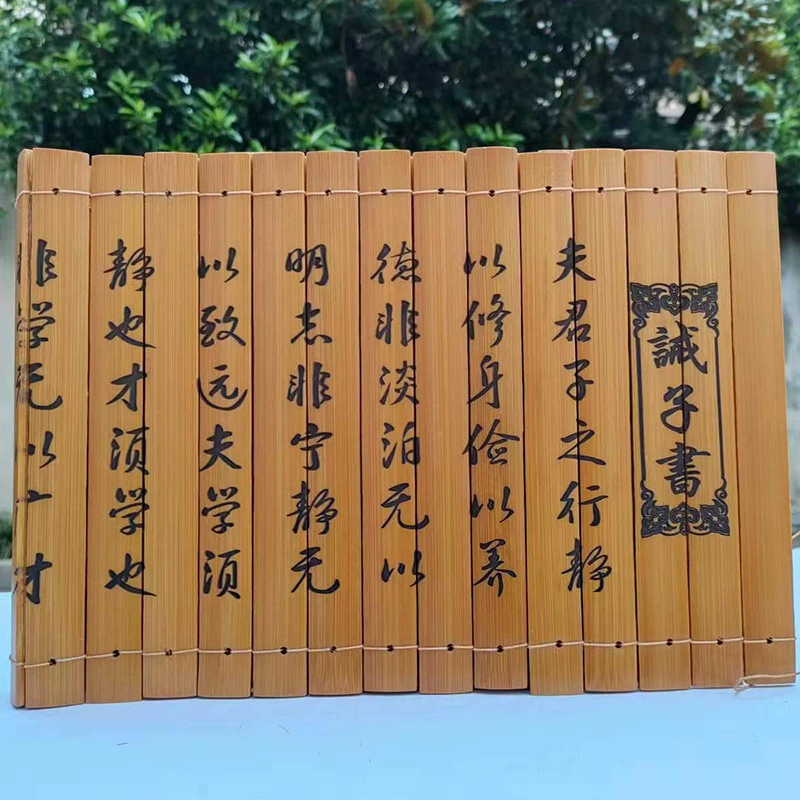 誡子書
夫君子之行静
以修身俭以养
德非淡泊无以
明志非宁静无
以致远夫学须
静也才须学也
非学无以广才